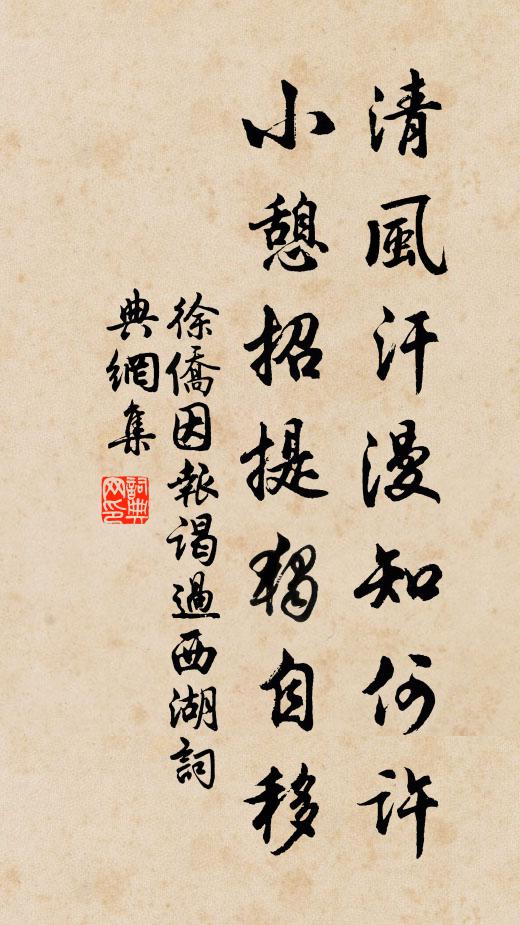 清風汗漫知何許
小憩招提獨自移
徐僑因報謁過西湖詞
典網集
詞典
网印